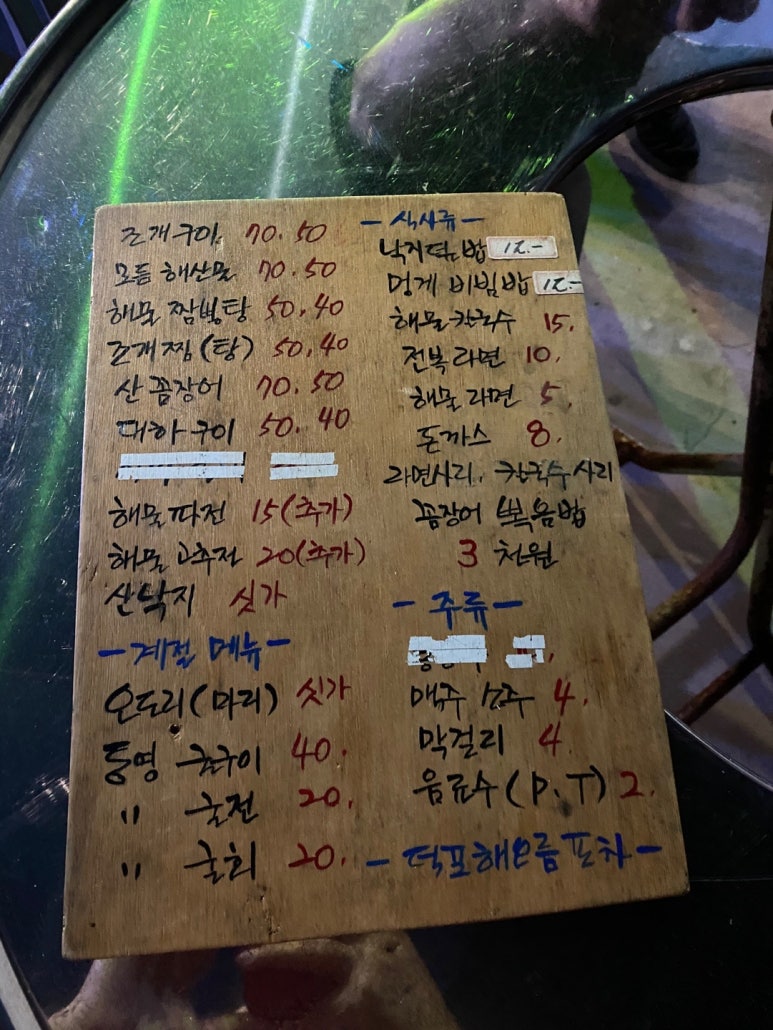 조개구이 70.50
모듬 해산물 70.50
해물 짬뽕탕 50.40
조개찜(탕) 50.40
산 꼼장어 70.50
대하구이 50.40
해물파전 15(추가)
해물고추전 20(추가)
산낙지 싯가
-계절 메뉴-
오도리(마리) 싯가
통영 굴구이 40.
" 굴전 20.
" 굴회 20.
-식사류-
낙지덮밥 12.-
멍게 비빔밥 12.-
해물칼국수 15.
전복라면 10.
해물라면 5.
돈까스 8.
라면사리, 칼국수사리
꼼장어 볶음밥
3 천원
-주류-
맥주 소주 4.
막걸리 4.
음료수(P.T) 2.
-덕포해오름포차-